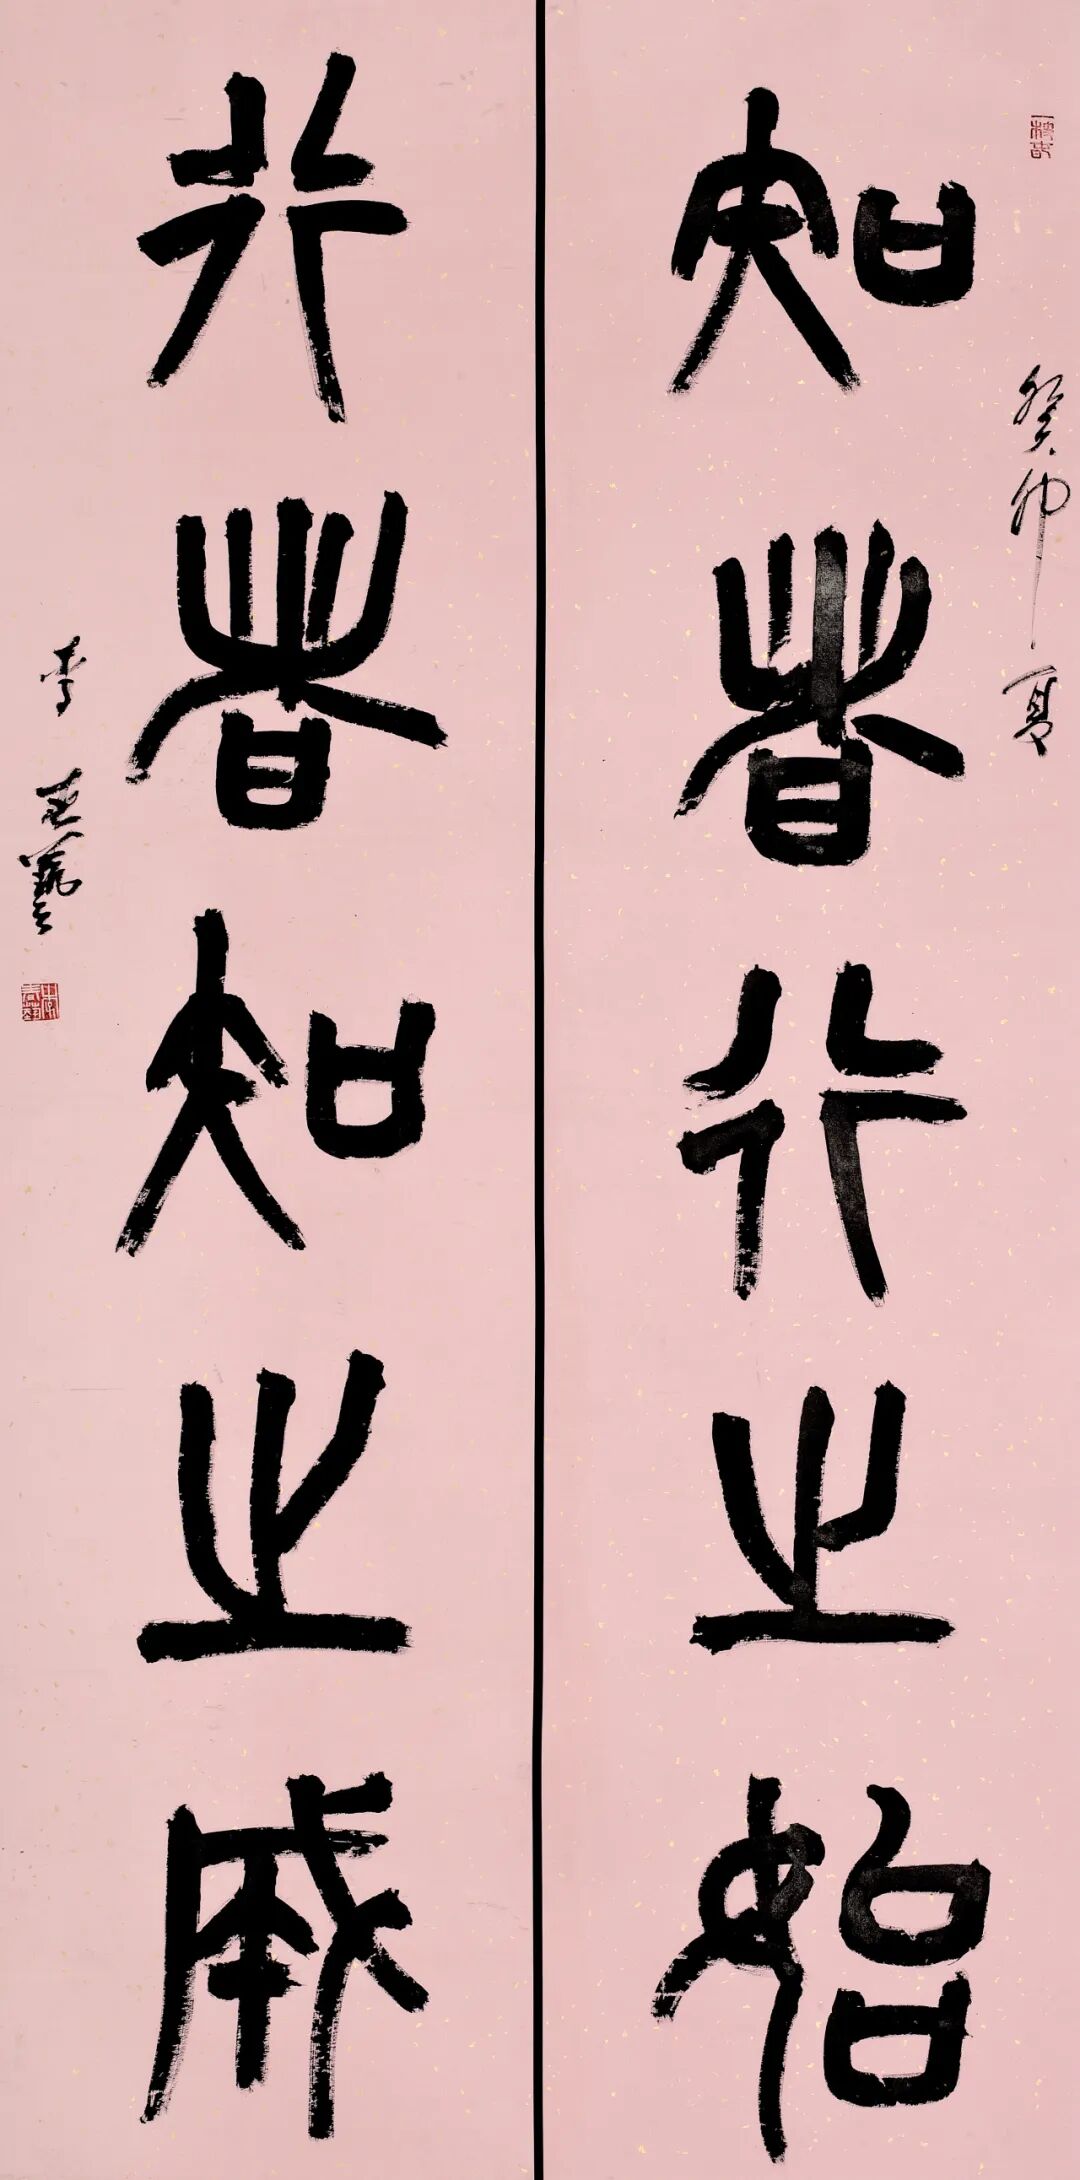 癸卯夏
知者行之始
行者知之成
李